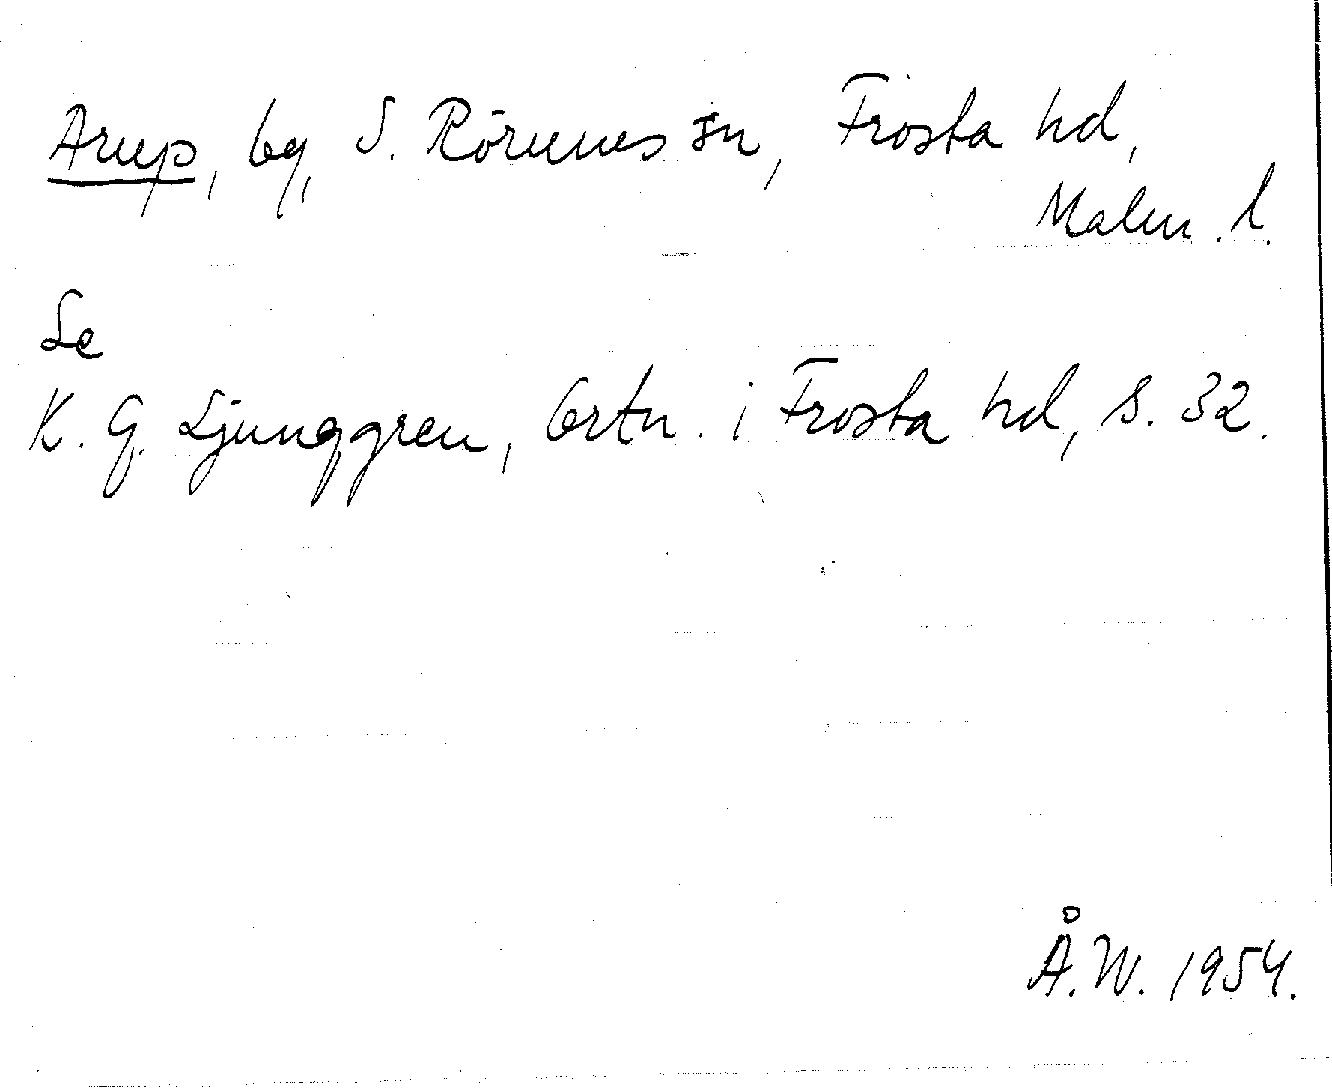 Arup, by, S. Rörums sn, Frosta hd,
Malm. l.
Se
K. G. Ljunggren, Ortn. i Frosta hd, s. 32.
Å. W. 1954.